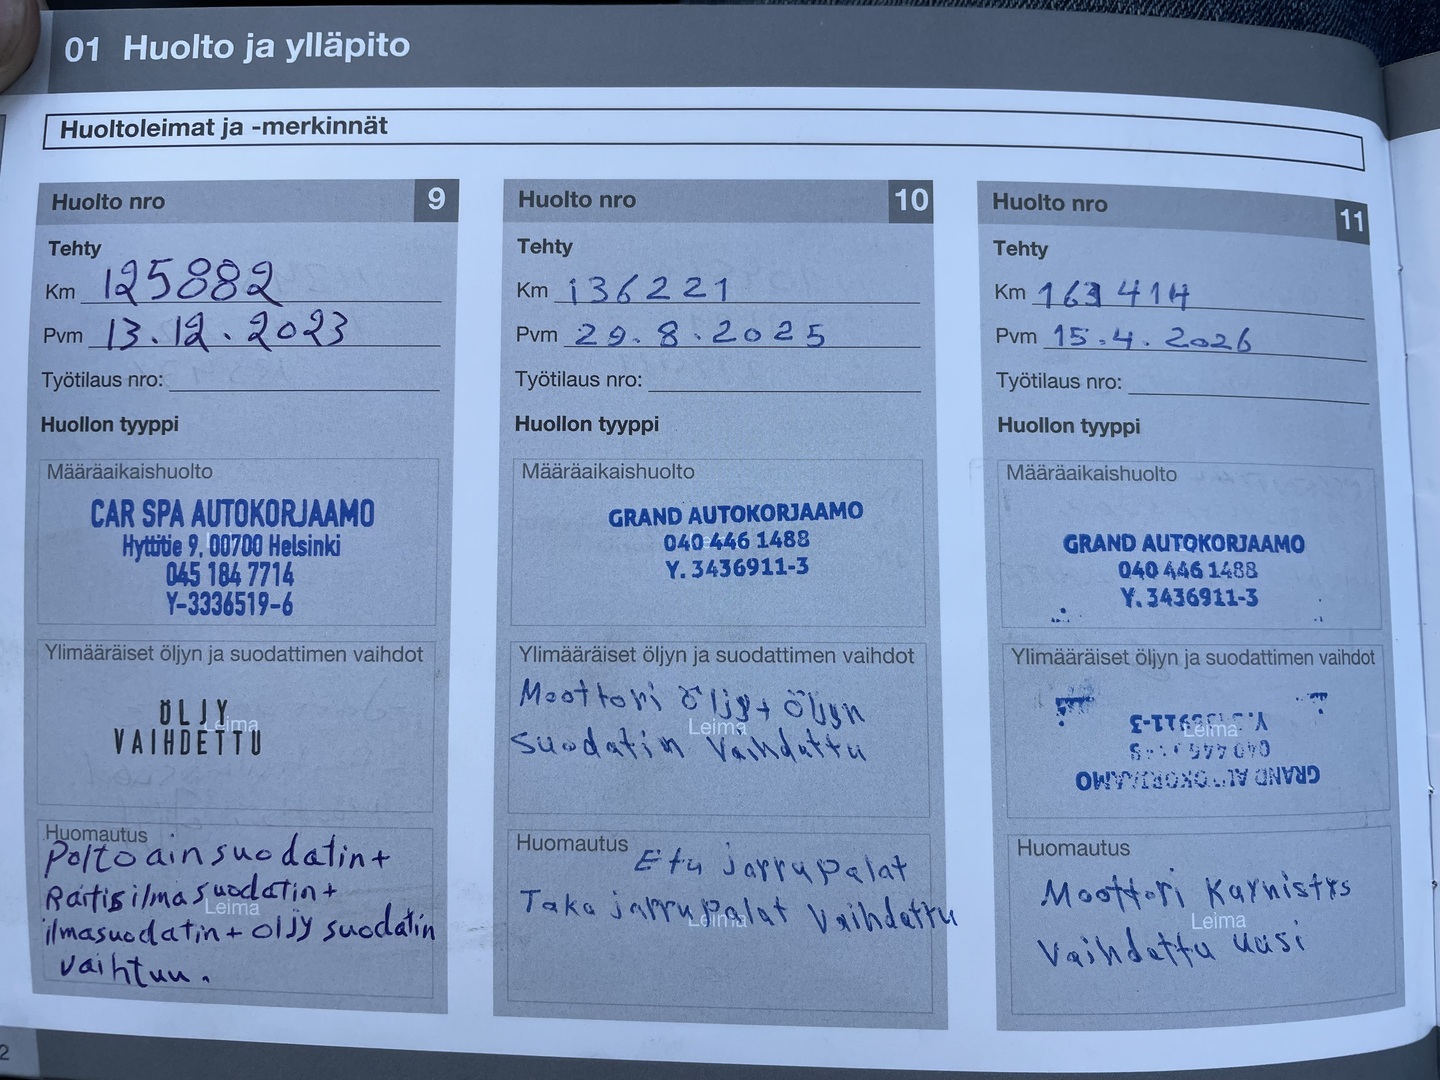 01 Huolto ja ylläpito
Huoltoleimat ja -merkinnät
Huolto nro 9
Tehty
Km 125882
Pvm 13.12.2023
Työtilaus nro:
Huollon tyyppi
Määräaikaishuolto
CAR SPA AUTOKORJAAMO
Hyttitie 9, 00700 Helsinki
045 184 7714
Y-3336519-6
Ylimääräiset öljyn ja suodattimen vaihdot
Leima
ÖLJY
VAIHDETTU
Huomautus
Poltoainsuodatin+
Raitisilmasuodatin+
Leima
ilmasuodatin+ öljy suodatin
vaihtuu.
Huolto nro 10
Tehty
Km 136221
Pvm 29.8.2025
Työtilaus nro:
Huollon tyyppi
Määräaikaishuolto
GRAND AUTOKORJAAMO
040 446 1488
Y. 3436911-3
Ylimääräiset öljyn ja suodattimen vaihdot
Moottori öljy+ öljyn
Leima
suodatin vaihdettu
Huomautus
Etu jarrupalat
Taka jarrupalat vaihdettu
Leima
Huolto nro 11
Tehty
Km 414
Pvm 15.4.2026
Työtilaus nro:
Huollon tyyppi
Määräaikaishuolto
GRAND AUTOKORJAAMO
040 446 1488
Y. 3436911-3
Ylimääräiset öljyn ja suodattimen vaihdot
Leima
GRAND AUTOKORJAAMO
Huomautus
Moottori
Leima
Vaihdettu uusi
2